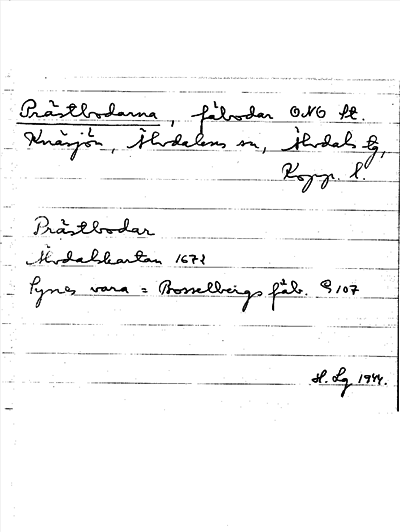 Prästbodarna, fäbodar ONO St.
Knäsjön, Älvdalens sn, Älvdals tg,
Kopp. l.
Prästbodar
Älvdalskartan 1672
Synes vara = Bosselbergs fäb. § 107
H. Lg 1944.